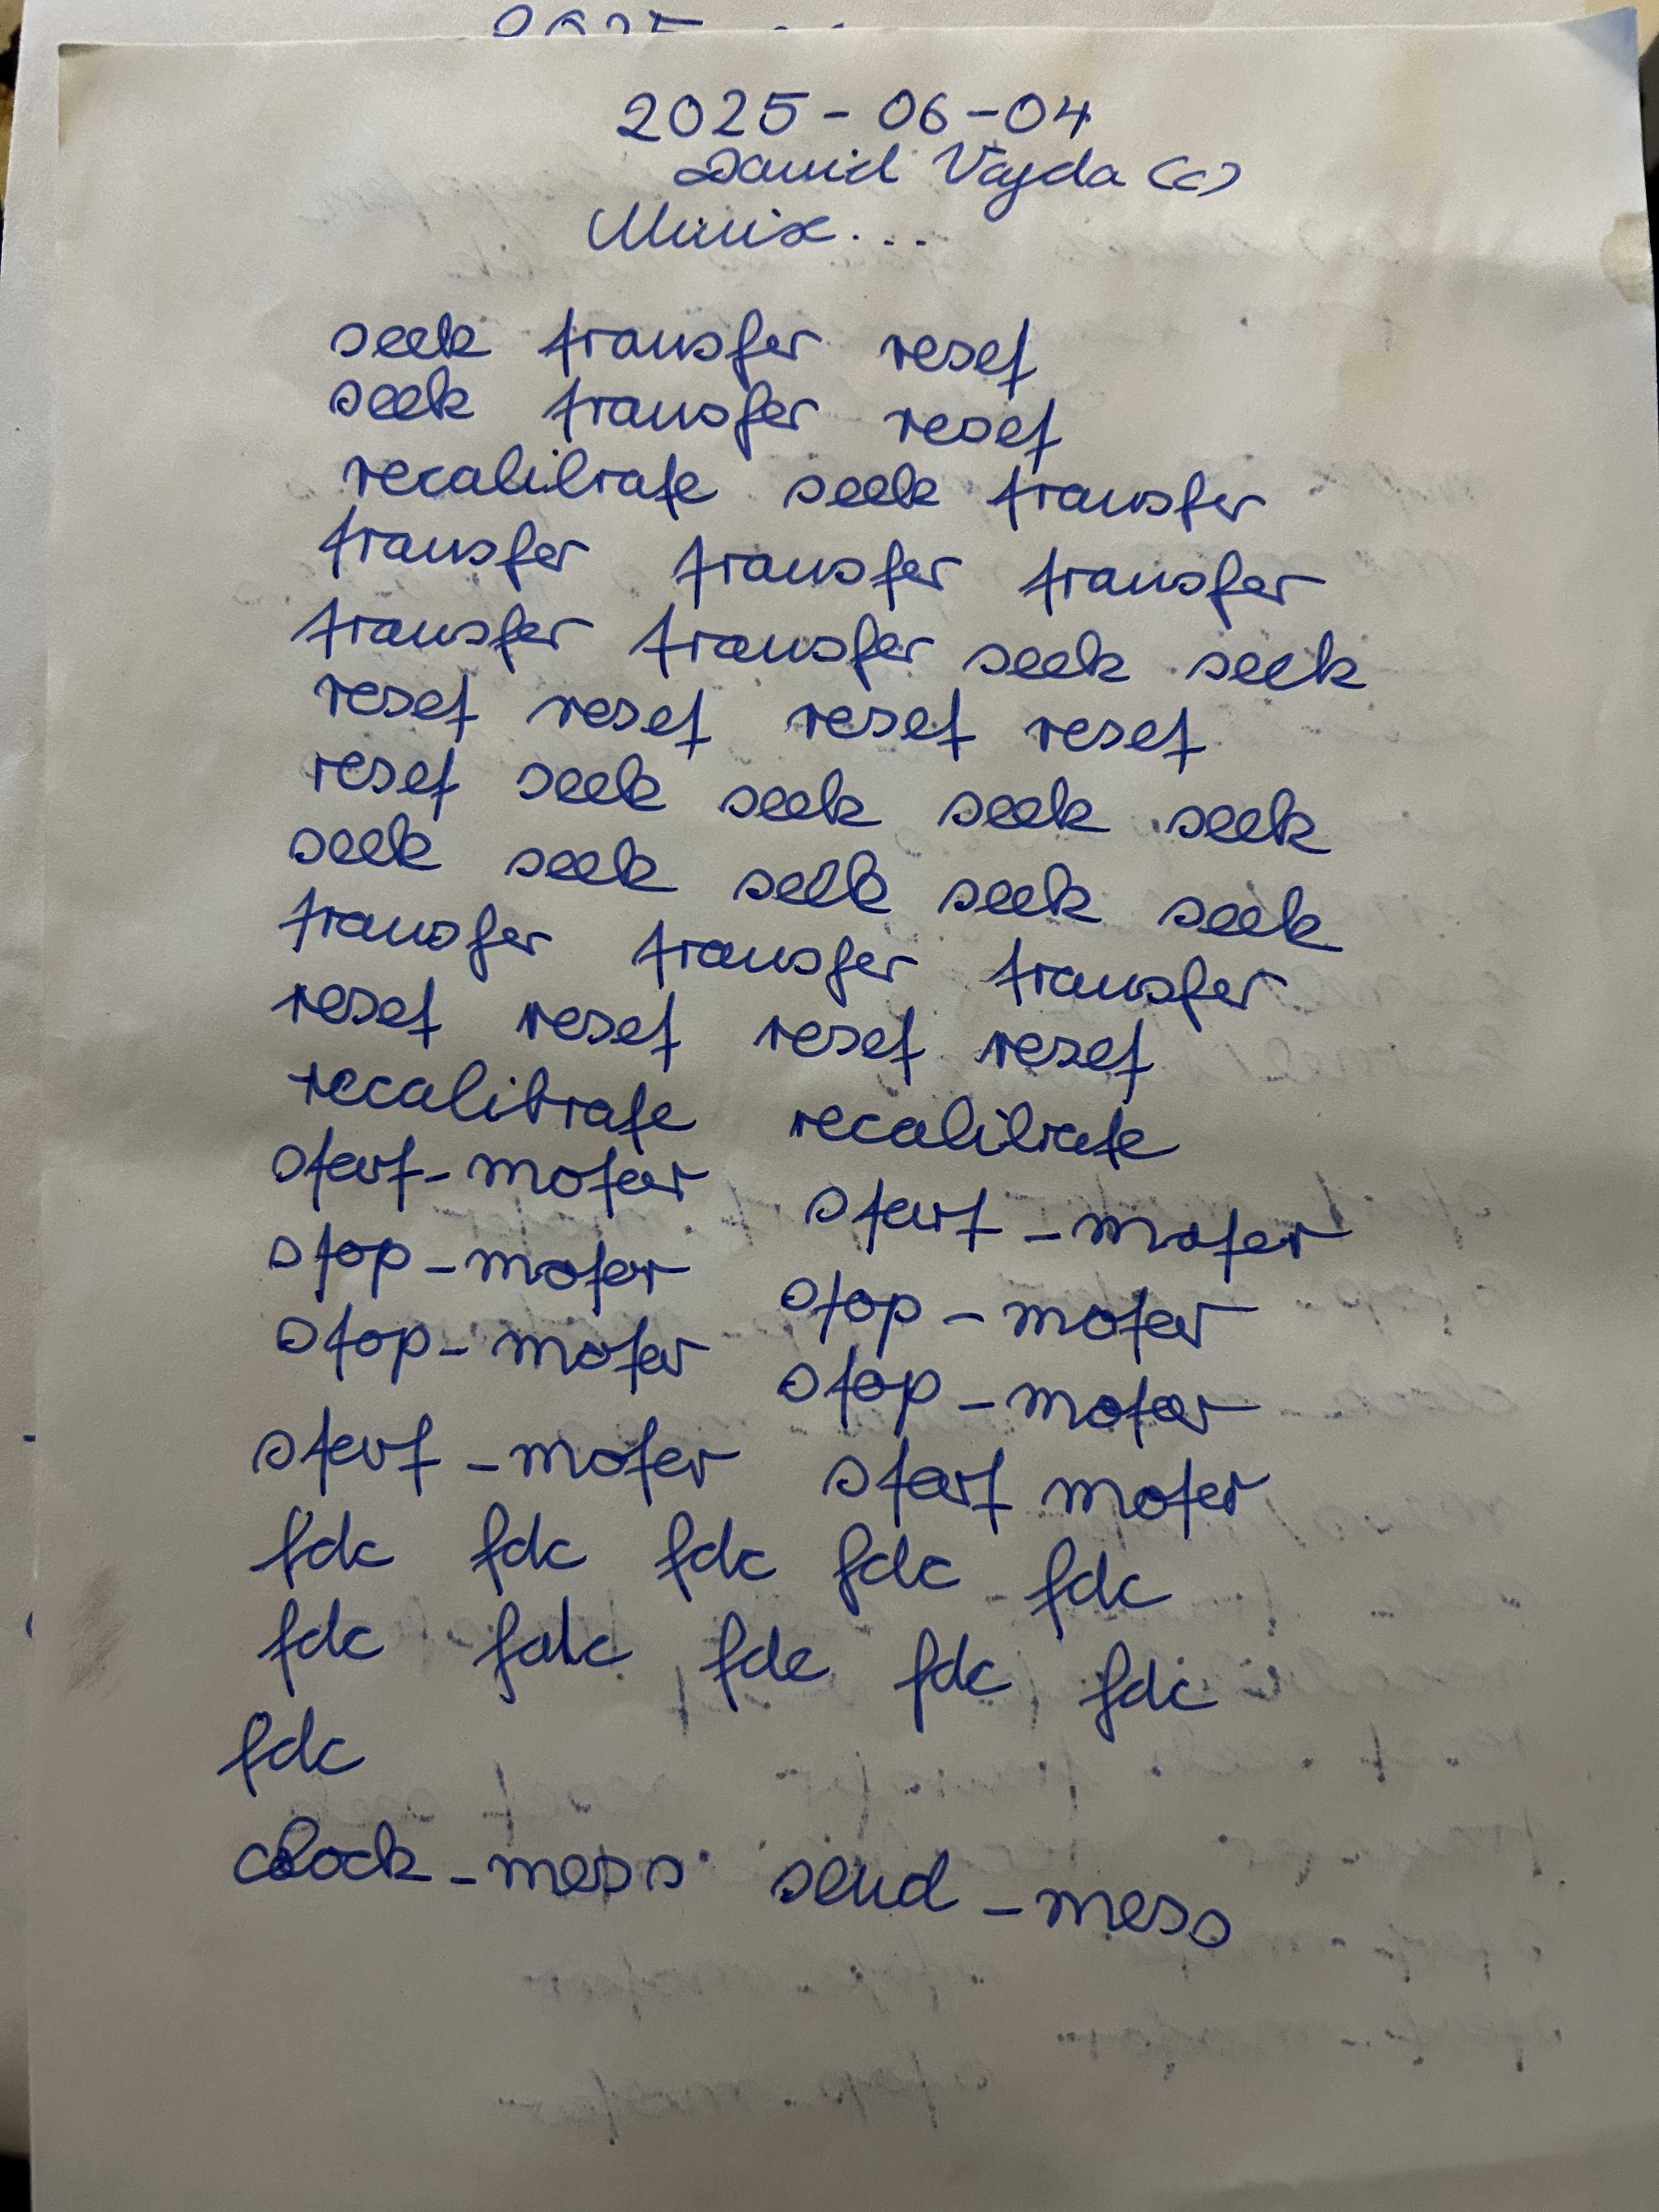 2025-06-04
David Vajda (c)
Minix...
seek transfer reset
seek transfer reset
recalibrate seek transfer
transfer transfer transfer
transfer transfer seek seek
reset reset reset reset
reset seek seek seek seek
seek seek seek seek seek
transfer transfer transfer
reset reset reset reset
recalibrate recalibrate
start-moter start-moter
stop-moter stop-moter
stop-moter stop-moter
start-moter start moter
fdc fdc fdc fdc fdc
fdc fdc fdc fdc fdc
fdc
clock-mess send-mess